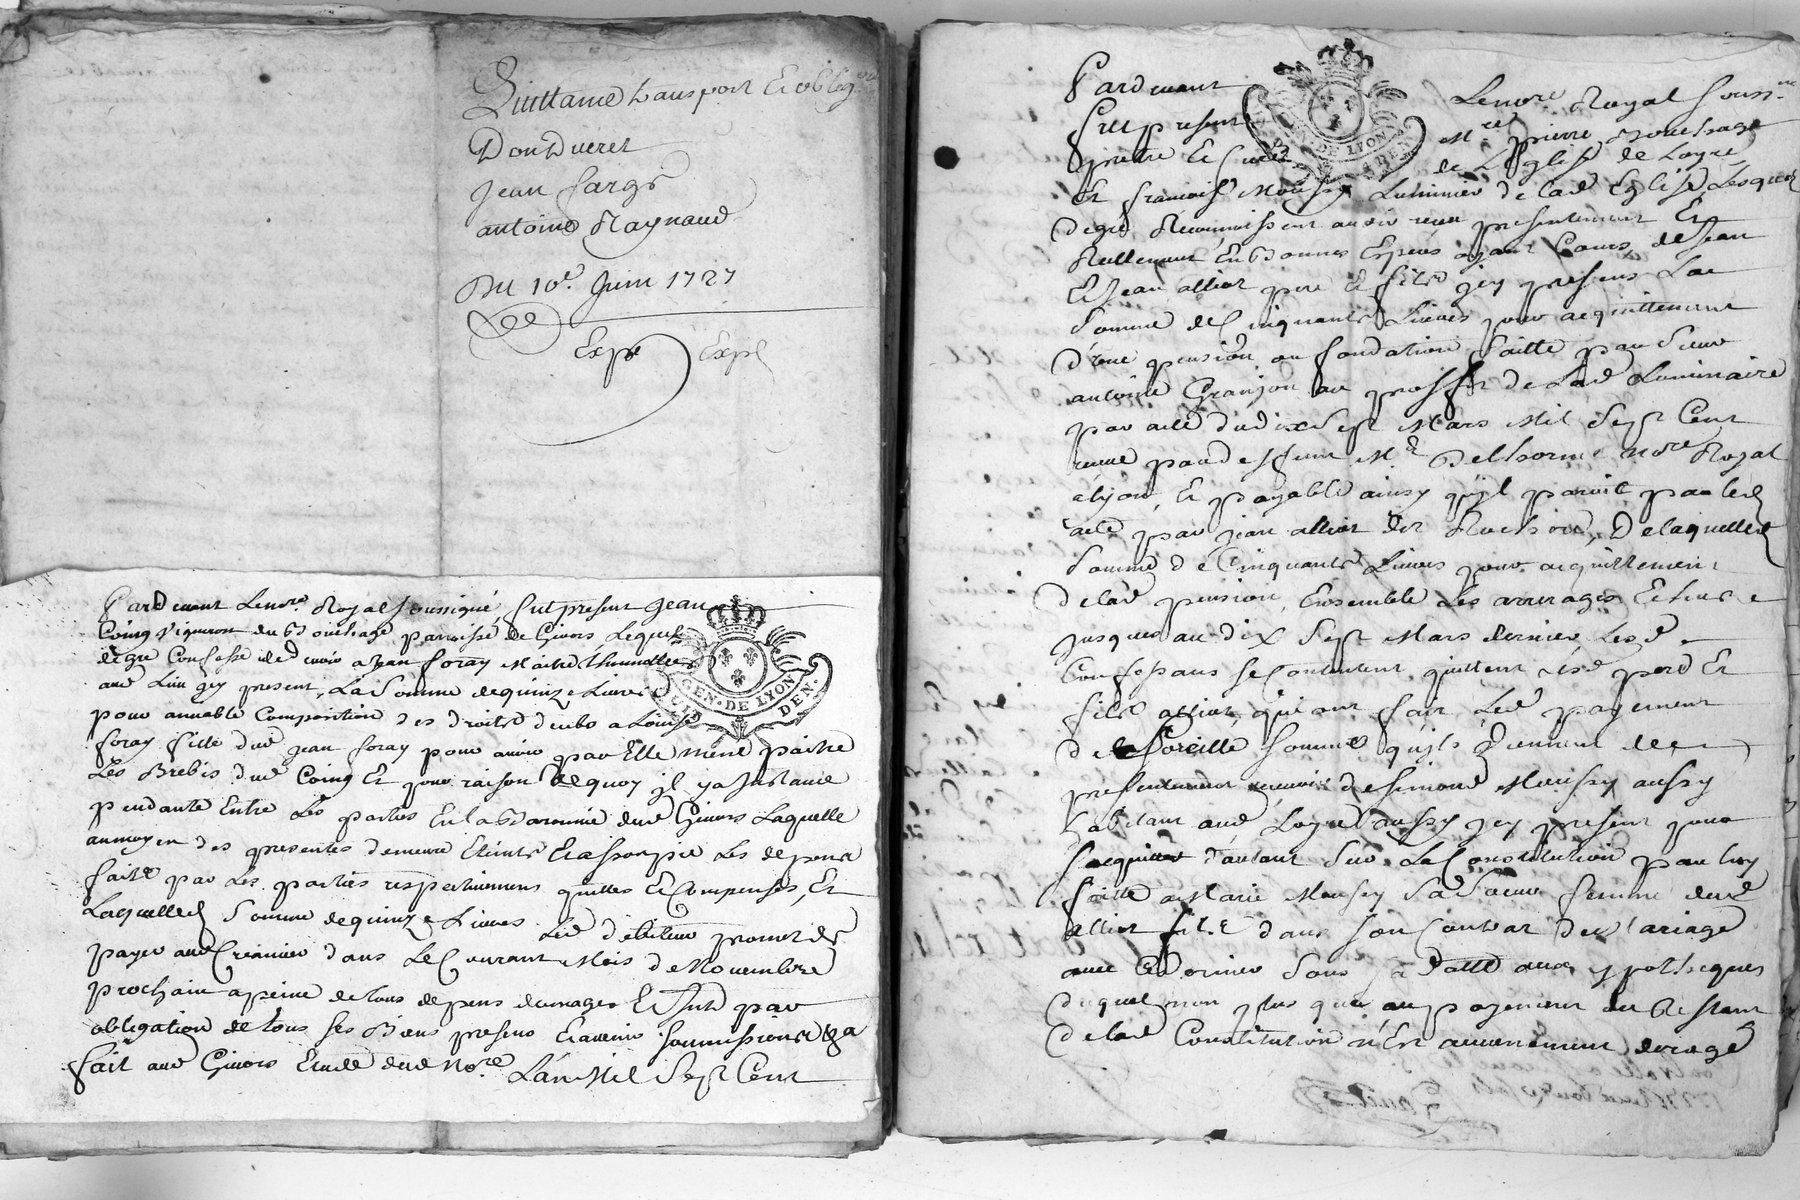 Quittance transport Et oblig.on
Jean farge
antoine Raynaud
Du 10e. Juin 1727
Expé Expé
Pardevant Le no.re Royal soussigné, fut present Jean
Coing Vigneron du paroisse de Givors Lequel
de gré Confesse devoir a Jean foray Maitre
aud Lieu icy present, La Somme de quinze Livres
pour amiable Composition des droits deubs a Louise
foray fille dud Jean foray pour avoir par Elle mené paitre
Les Brebis dud Coing Et pour raison de quoy il y a Instance
pendante Entre Les parties En la dud Givors Laquelle
au moyen des presentes demeure Eteinte Et assoupie Les depens
faits par Les parties respectivement quittes Et Compensés, Et
Laquelle Somme de quinze Livres Led debiteur promet de
payer aud Creancier dans Le Courant Mois de Novembre
prochain a peine de tous depens domages Et par
obligation de tous ses Biens presens Et avenir soumissions &a
fait aud Givors Etude dud No.re L'an Mil Sept Cent
GEN. DE LYON
DEN.
Pardevant Le no.re Royal souss.né
fut present M.re pierre
pretre Et Curé de L'Eglise de Loyre
Et françois Moussy Luminier de lad Eglise Lesquels
de gré Reconnoissent avoir receu presentement Et
Reellement En bonnes Especes ayant Cours de Jean
Et Jean alliot pere Et fils icy presens La
Somme de Cinquante Livres pour acquittement
d'une pension ou fondation faitte par Sieur
antoine Granjon au proffit de Lad Luminaire
par acte du dix Sept Mars Mil Sept Cent
receue par deffunt M.e Delhorme no.re Royal
a lyon, Et payable ainsy qu'il paroit par led
acte par Jean alliot de laquelle
Somme de Cinquante Livres pour acquittement
de lad pension, Ensemble Les arrerages Echus
jusques au dix Sept Mars dernier Lesd
Confessans se Contentent quittent lesd pere Et
fils alliot, qui ont fait Led payement
de la pareille Somme qu'ils Viennent de
presentement recevoir de Simond Moussy aussy
habitant aud Loyre aussy icy present pour
Sacquitter d'autant Sur La Constitution par luy
faite a Marie Moussy Sa Soeur femme dud
alliot fils dans Son Contrat de Mariage
avec Ce dernier Sans a Datte aux ypotheques
duquel non plus que au payement du Restant
de lad Constitution n'Est aucunement derogé
DE LYON
DEN